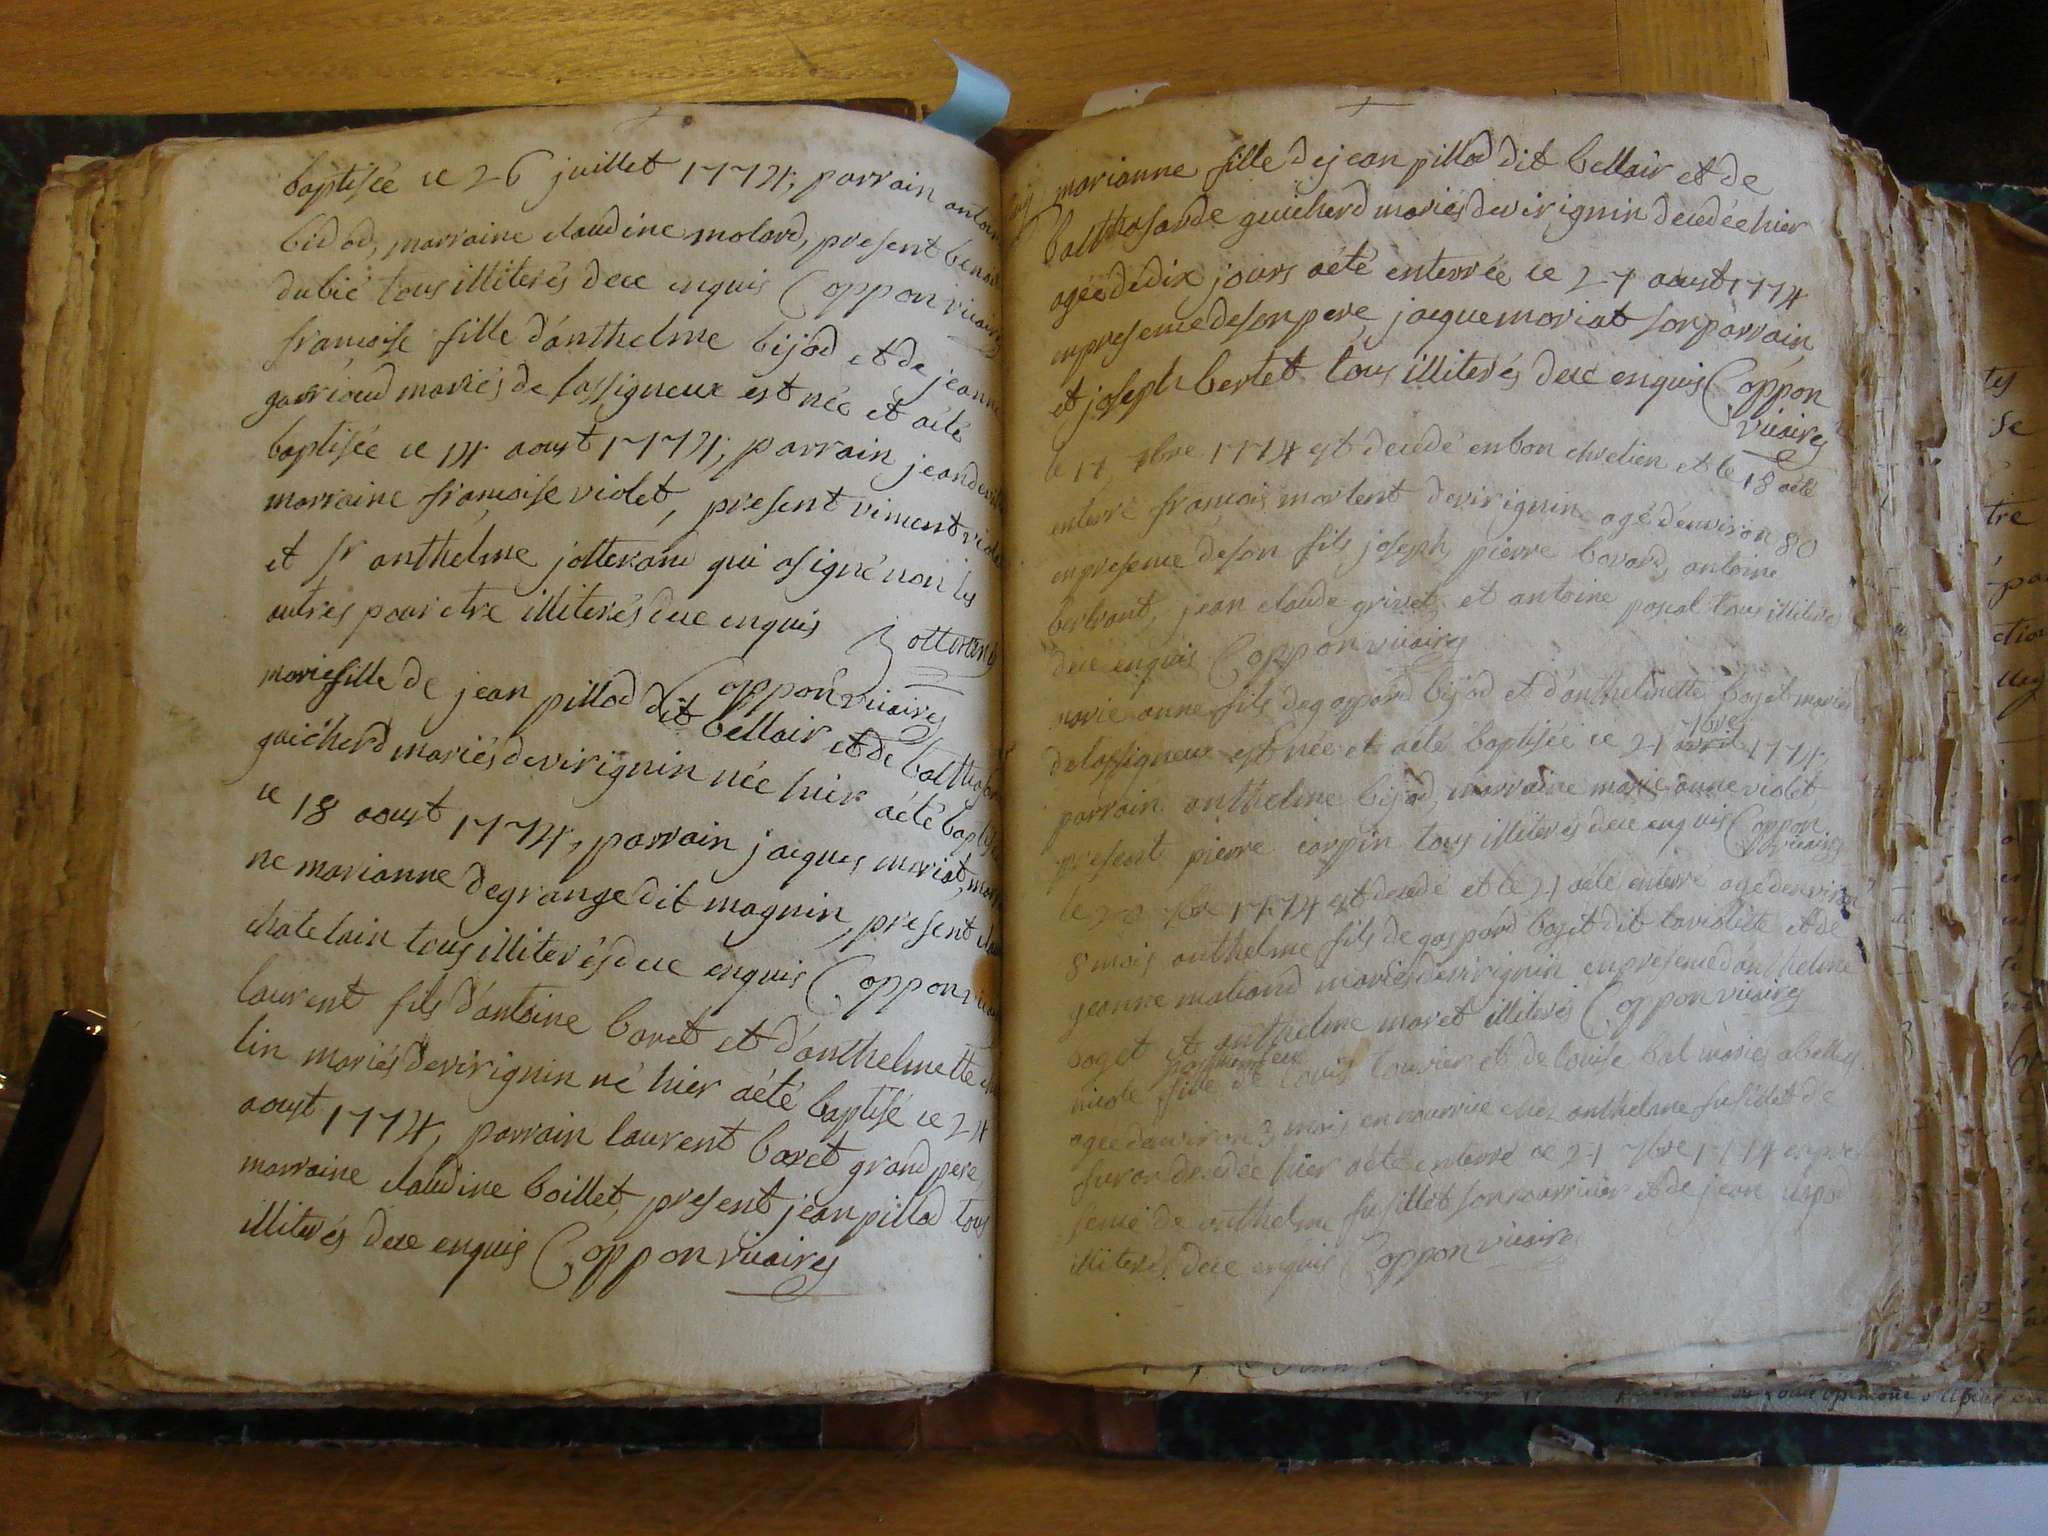 baptisée ce 26 juillet 1774, parrain antoin
bidod, marraine claudine molard, present benoit
dubié tous illiterés dece enquis Coppon vicaires
françoise fille d'anthelme bijod et de jeanne
gavrioud mariés de lassigneux est née et aété
baptisée ce 14 aoust 1774, parrain jean
marraine françoise violet, present vincent violet
et sr anthelme jotterand qui asigné non les
autres pour etre illiterés dece enquis Jotterand
Coppon vicaires
marie fille de jean pillod dit bellair et de balthasarde
guicherd mariés devirignin née hier aété baptisée
ce 18 aoust 1774, parrain jacques moriat, marrai
ne marianne degrange dit magnin, present
chatelain tous illiterés dece enquis Coppon vicaires
laurent fils d'antoine boret et d'anthelmette
lin mariés devirignin né hier aété baptisé ce 24
aoust 1774, parrain laurent boret grand pere,
marraine claudine boillet, present jean pillod tous
illiterés dece enquis Coppon vicaires
marianne fille dejean pillod dit bellair et de
balthasarde guicherd mariés devirignin decedée hier
agée dedix jours aété enterrée ce 27 aoust 1774
enpresence deson pere, jacque moriat son parrain,
et joseph bertet tous illiterés dece enquis Coppon
vicaires
le 17 7bre 1774 est decedé enbon chretien et le 18 aété
enterré françois martent devirignin agé d'environ 80
enpresence deson fils joseph, pierre bovard, antoine
bertrant, jean claude grivet, et antoine pascal tous illiterés
dece enquis Coppon vicaires
marie anne fils de gaspard bijod et d'anthelmette boget mariés
7bre
delassigneux est née et aété baptisée ce 21 avril 1774,
parrain anthelme bijod, marraine marie anne violet
present pierre carpin tous illiterés dece enquis Coppon
vicaires
le 20 7bre 1774 est decedé et le 21 aété enterré agé denviron
8 mois anthelme fils de gaspard boget dit laviolete et de
jeanne maband mariés devirignin enpresence d'anthelme
boget et anthelme moret illiterés Coppon vicaires
nicole fille de louis touvier et de louise bal mariés abelley
agée denviron 3 mois ennourrice chez anthelme fusillet de
furon decedée hier aété enterré ce 21 7bre 1774 enpre
sence de anthelme fusillet son nourricier et de jean
illiterés dece enquis Coppon vicaire